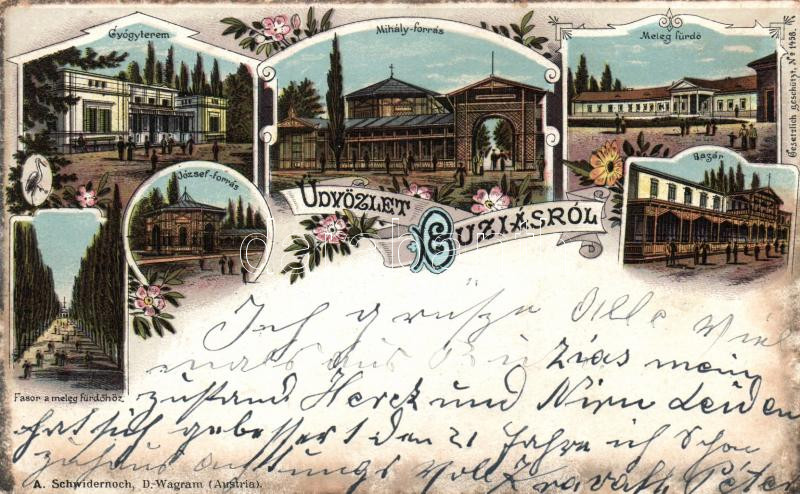 Gyógyterem
Mihály-forrás
Meleg fürdő
Gesetzlich geschützt, No 1458.
József-forrás
Bazár
ÜDVÖZLET
BUZIÁSRÓL
Fasor a meleg fürdőhöz.
Ich grusze Alle viel
mals aus Buzias mein
zustand Herck und Nirn Leiden
hat sich gebessert den 21 Jahre ich Schon
zuhaus
voll Peter
A. Schwidernoch, D.-Wagram (Austria).